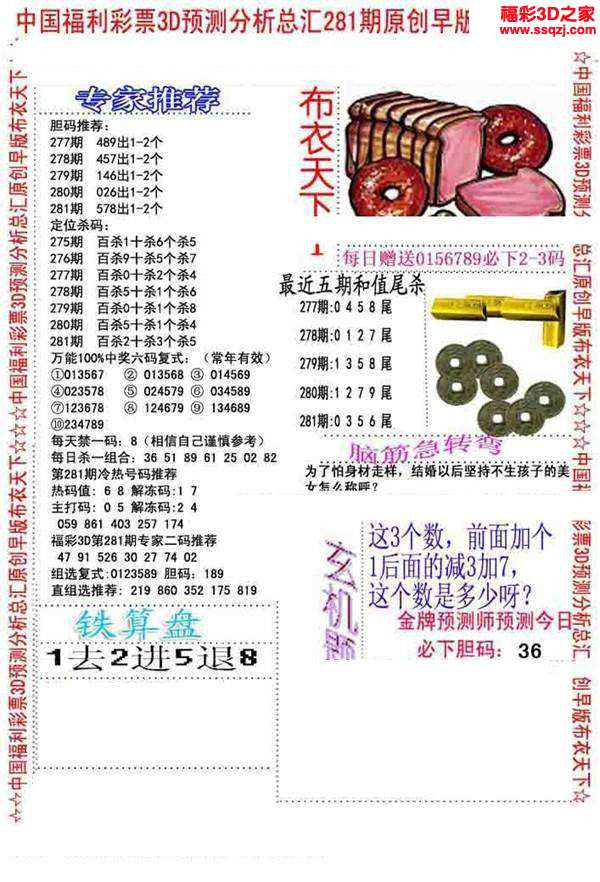 中国福利彩票3D预测分析总汇281期原创早版
福彩3D之家
www.ssqzj.com
专家推荐
胆码推荐：
277期 489出1-2个
278期 457出1-2个
279期 146出1-2个
280期 026出1-2个
281期 578出1-2个
定位杀码：
275期 百杀1十杀6个杀5
276期 百杀9十杀5个杀7
277期 百杀0十杀2个杀4
278期 百杀5十杀1个杀6
279期 百杀0十杀1个杀8
280期 百杀5十杀1个杀4
281期 百杀2十杀3个杀5
万能100%中奖六码复式：（常年有效）
①013567 ② 013568 ③ 014569
④023578 ⑤ 024579 ⑥ 034589
⑦123678 ⑧ 124679 ⑨ 134689
⑩234789
每天禁一码：8（相信自己谨慎参考）
每日杀一组合：36 51 89 61 25 02 82
第281期冷热号码推荐
热码值：6 8 解冻码:1 7
主打码：0 5 解冻码:2 4
059 861 403 257 174
福彩3D第281期专家二码推荐
47 91 526 30 27 74 02
组选复式:0123589 胆码：189
直组选推荐：219 860 352 175 819
铁算盘
1去2进5退8
布衣天下
每日赠送0156789必下2-3码
最近五期和值尾杀
277期:0 4 5 8 尾
278期:0 1 2 7 尾
279期:1 3 5 8 尾
280期:1 2 7 9 尾
281期:0 3 5 6 尾
脑筋急转弯
为了怕身材走样，结婚以后坚持不生孩子的美
女怎么称呼？
玄机题
这3个数，前面加个
1后面的减3加7，
这个数是多少呀？
金牌预测师预测今日
必下胆码： 36
☆☆中国福利彩票3D预测分析总汇原创早版布衣天下☆☆☆中国福利彩票3D预测分析总汇原创早版布衣天下
☆中国福利彩票3D预测分
总汇原创早版布衣天下☆☆☆中国福利
彩票3D预测分析总汇
创早版布衣天下☆